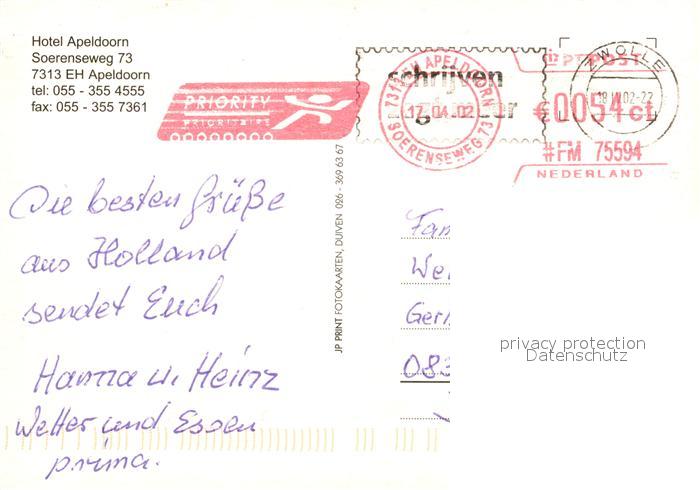 Hotel Apeldoorn
Soerenseweg 73
7313 EH Apeldoorn
tel: 055 - 355 4555
fax: 055 - 355 7361
PRIORITY
PRIORITAIRE
schrijven
7313 EH APELDOORN
17.04.02
SOERENSEWEG 73
PTT POST
€0054 CL
#FM 75594
NEDERLAND
ZWOLLE
02-22
JP PRINT FOTOKAARTEN, DUIVEN 026 - 369 63 67
Die besten Grüße
aus Holland
sendet Euch
Hanna u. Heinz
Wetter und Essen
prima.
Fam
We
Ger
083
privacy protection
Datenschutz